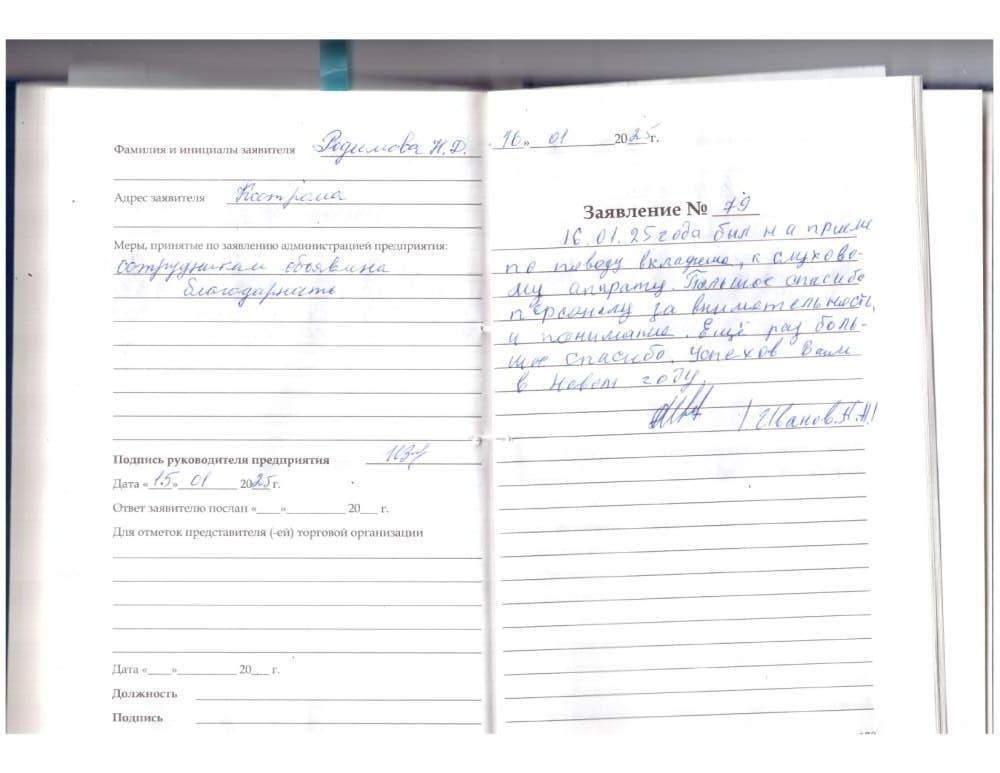 Фамилия и инициалы заявителя Родимова Н.Д.
Адрес заявителя Кострома
Меры, принятые по заявлению администрацией предприятия:
сотрудникам объявлена
благодарность
Подпись руководителя предприятия
Дата «15» 01 2025 г.
Ответ заявителю послан «___»_________ 20___ г.
Для отметок представителя (-ей) торговой организации
Дата «___»_________ 20___ г.
Должность
Подпись
16» 01 2025 г.
Заявление № 79
16.01.25 года был на приеме
по поводу вкладыша, к слухово-
му аппрату. Большое спасибо
персоналу за внимательность,
и понимание. Ещё раз боль-
шое спасибо. Успехов Вам
в Новом году.
/Иванов.А.А/